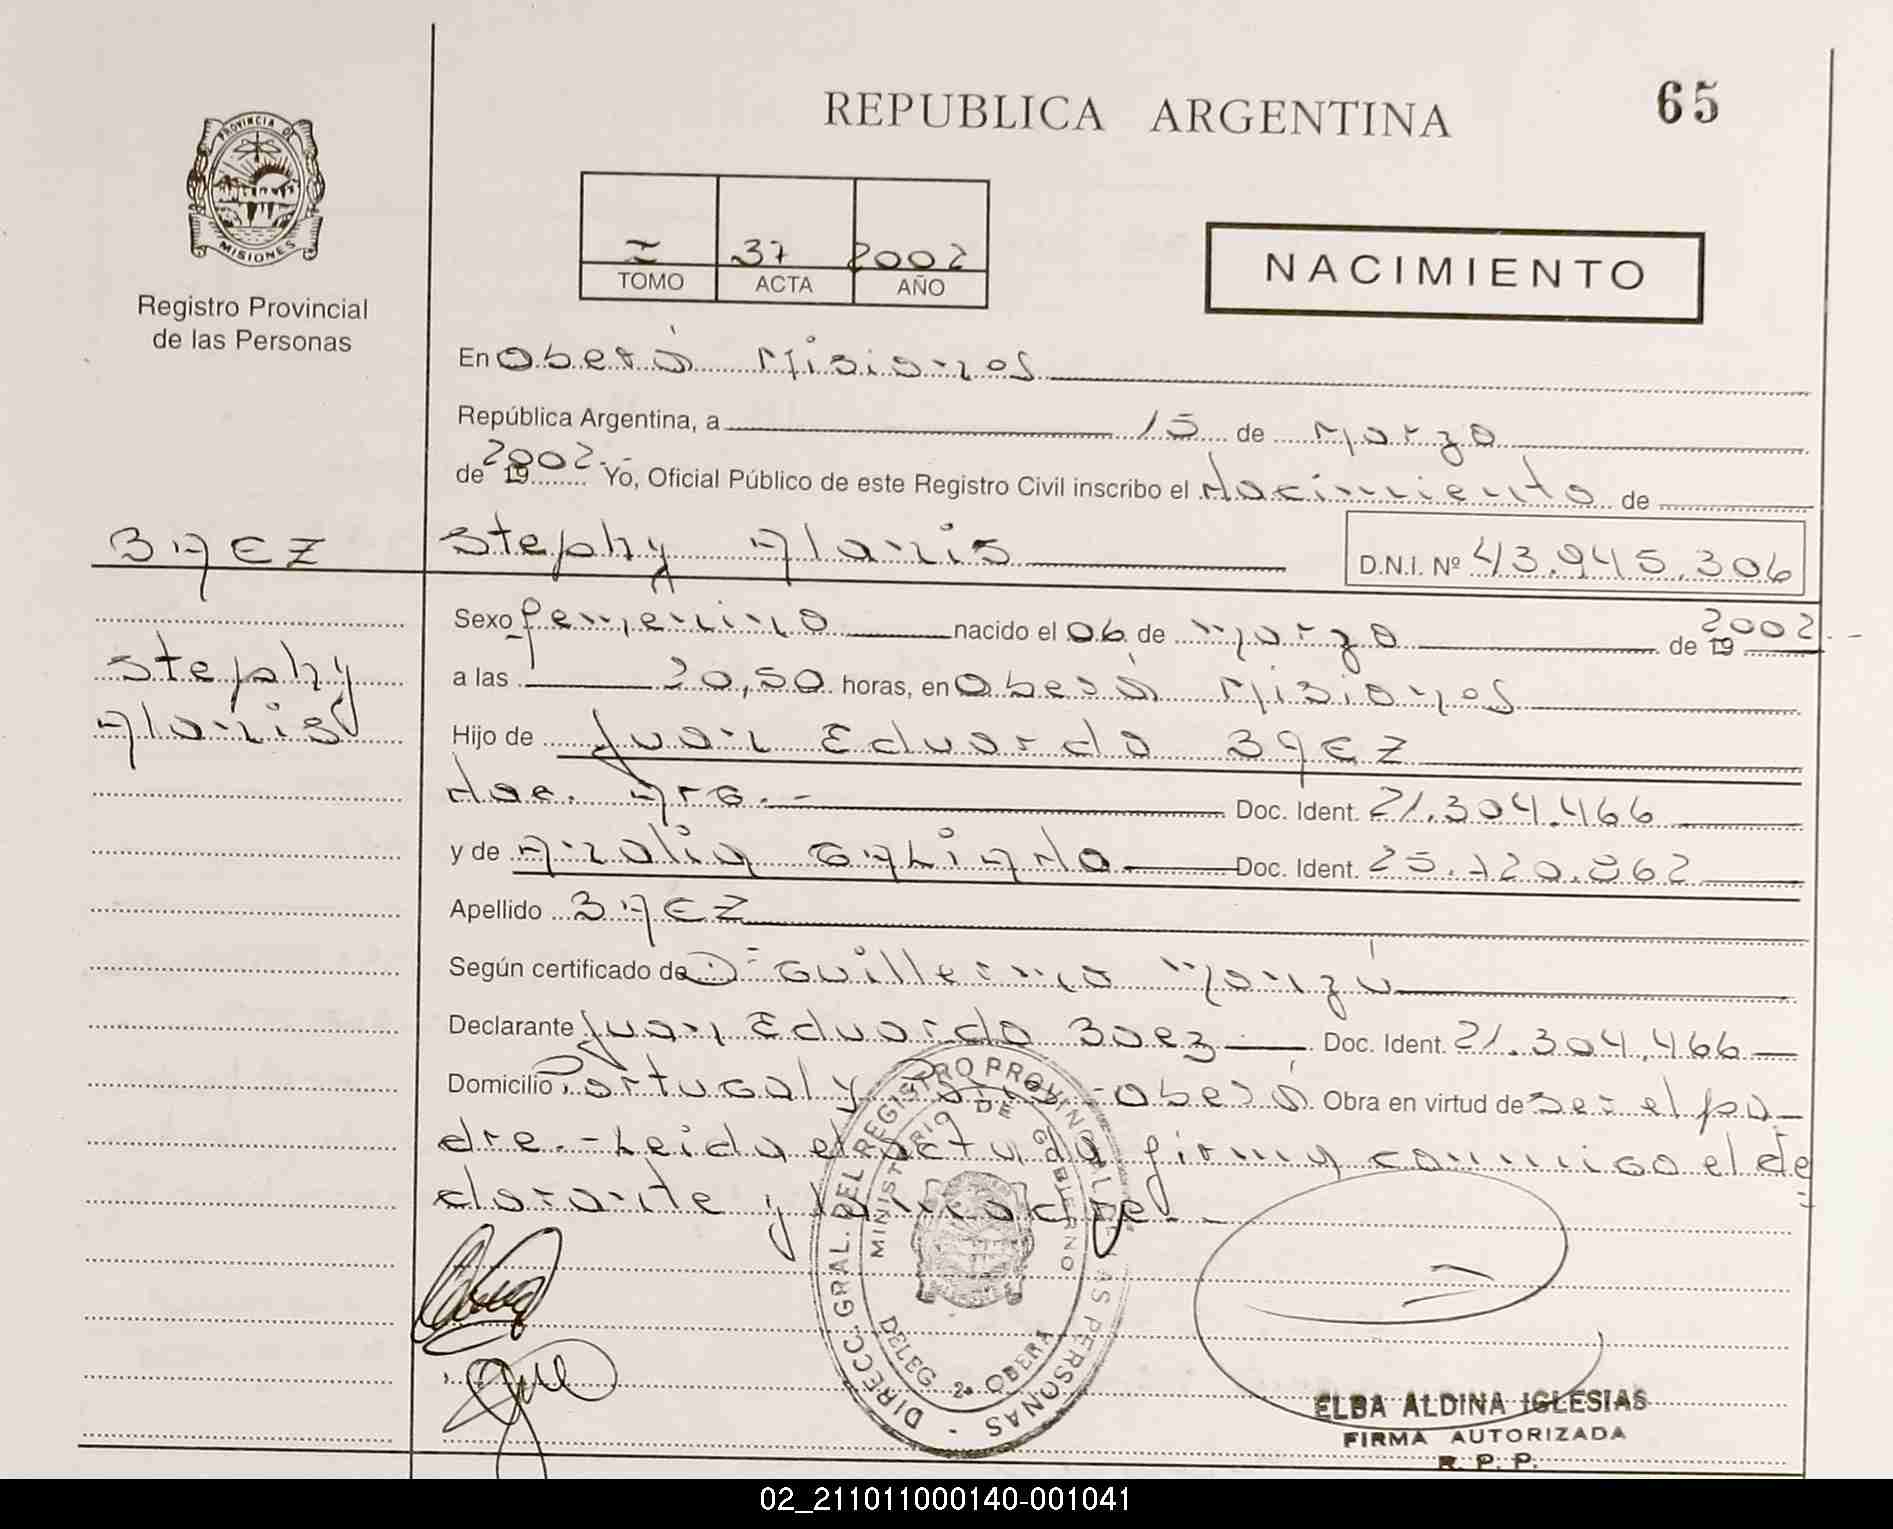 REPUBLICA ARGENTINA
65
PROVINCIA DE
MISIONES
Registro Provincial
de las Personas
I 37 2002
TOMO ACTA AÑO
NACIMIENTO
En Oberá Misiones
República Argentina, a 15 de Marzo
de 2002 19 Yo, Oficial Público de este Registro Civil inscribo el Nacimiento de
BAEZ
Stephy Alanis
D.N.I. Nº 43.945.306
Sexo femenino nacido el 06 de Marzo de 19 2002.-
Stephy
Alanis
a las 20,50 horas, en Oberá Misiones
Hijo de Juan Eduardo BAEZ
Nac. Arg.- Doc. Ident. 21.304.466
y de Analia Doc. Ident.
Apellido BAEZ
Según certificado de Guillermo
Declarante Juan Eduardo Baez Doc. Ident. 21.304.466
Domicilio Portugal y - Oberá Obra en virtud de Ser el pa-
dre.- Leida el acta da firma conmigo el de
clarante y la madre.-
DIRECC. GRAL. DEL REGISTRO PROVINCIAL DE LAS PERSONAS -
MINISTERIO DE GOBIERNO
DELEG 2ª OBERA
ELBA ALDINA IGLESIAS
FIRMA AUTORIZADA
R. P. P.
02_211011000140-001041